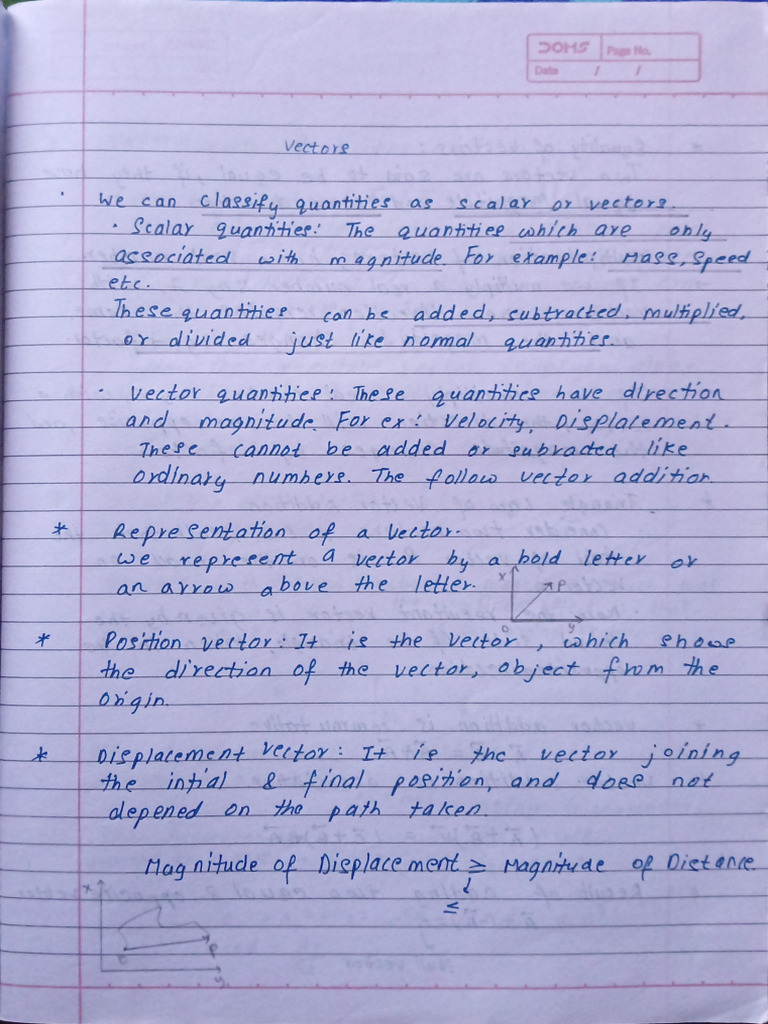 DOMS Page No.
Date / /
Vectors
We can classify quantities as scalar or vectors.
· Scalar quantities: The quantities which are only
associated with magnitude. For example: Mass, Speed
etc.
These quantities can be added, subtracted, multiplied,
or divided just like normal quantities.
· Vector quantities: These quantities have direction
and magnitude. For ex: Velocity, Displacement.
These cannot be added or subracted like
ordinary numbers. The follow vector addition.
* Representation of a Vector.
We represent a vector by a bold letter or
an arrow above the letter.
x P
O y
* Position vector: It is the vector, which shows
the direction of the vector, object from the
origin.
* Displacement vector: It is the vector joining
the intial & final position, and does not
depened on the path taken.
Magnitude of Displacement ≥ Magnitude of Distance
↓
≤
x
P
y